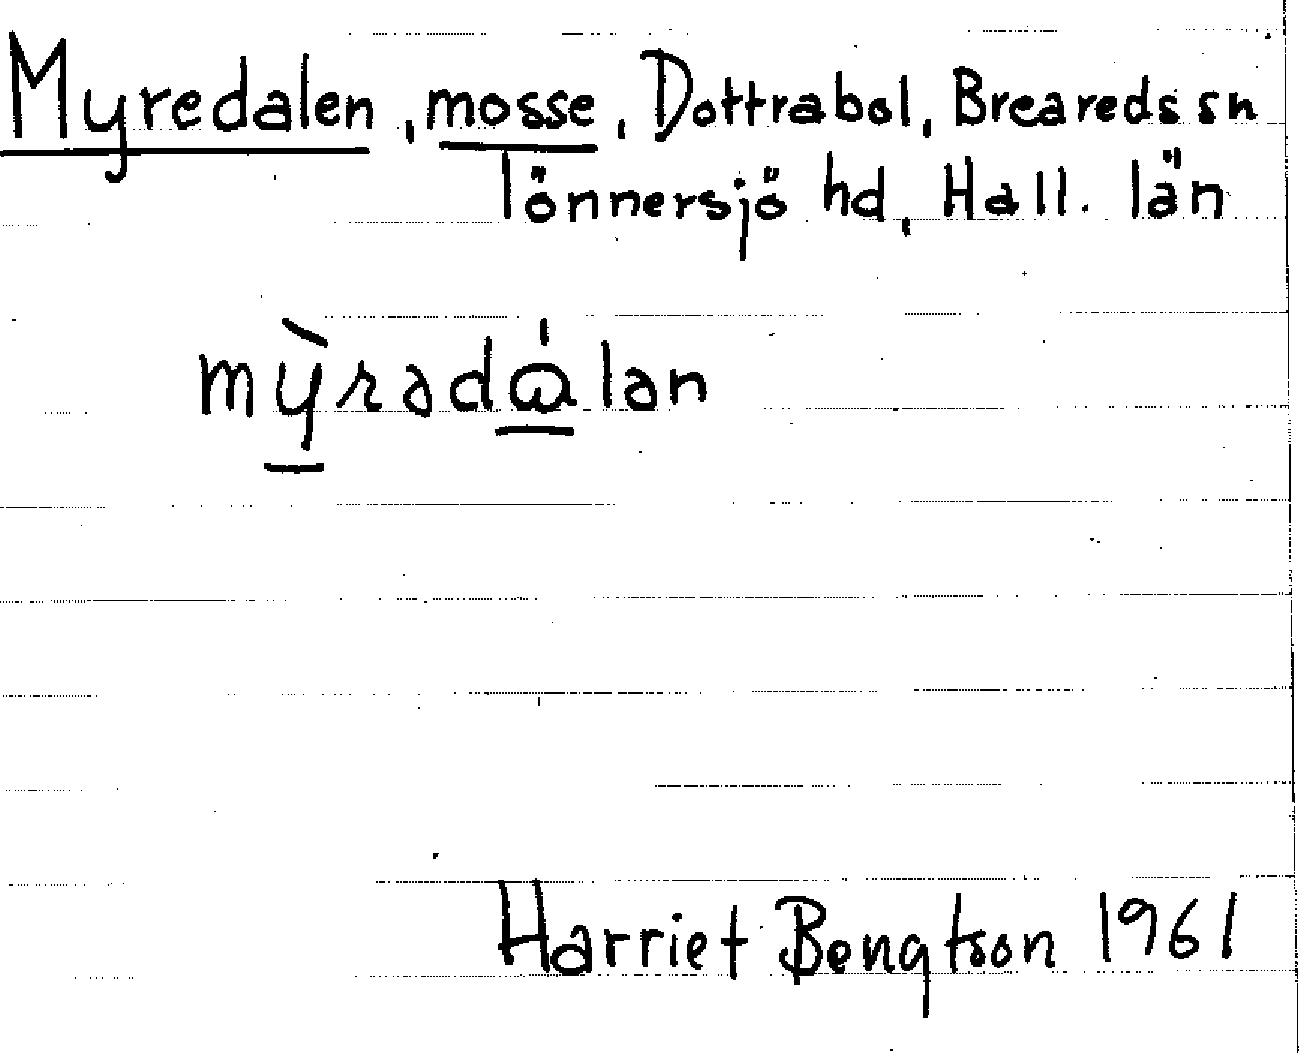 Myredalen, mosse, Dottrabol, Breareds sn
Tönnersjö hd, Hall. län
mỳradálan
Harriet Bengtson 1961